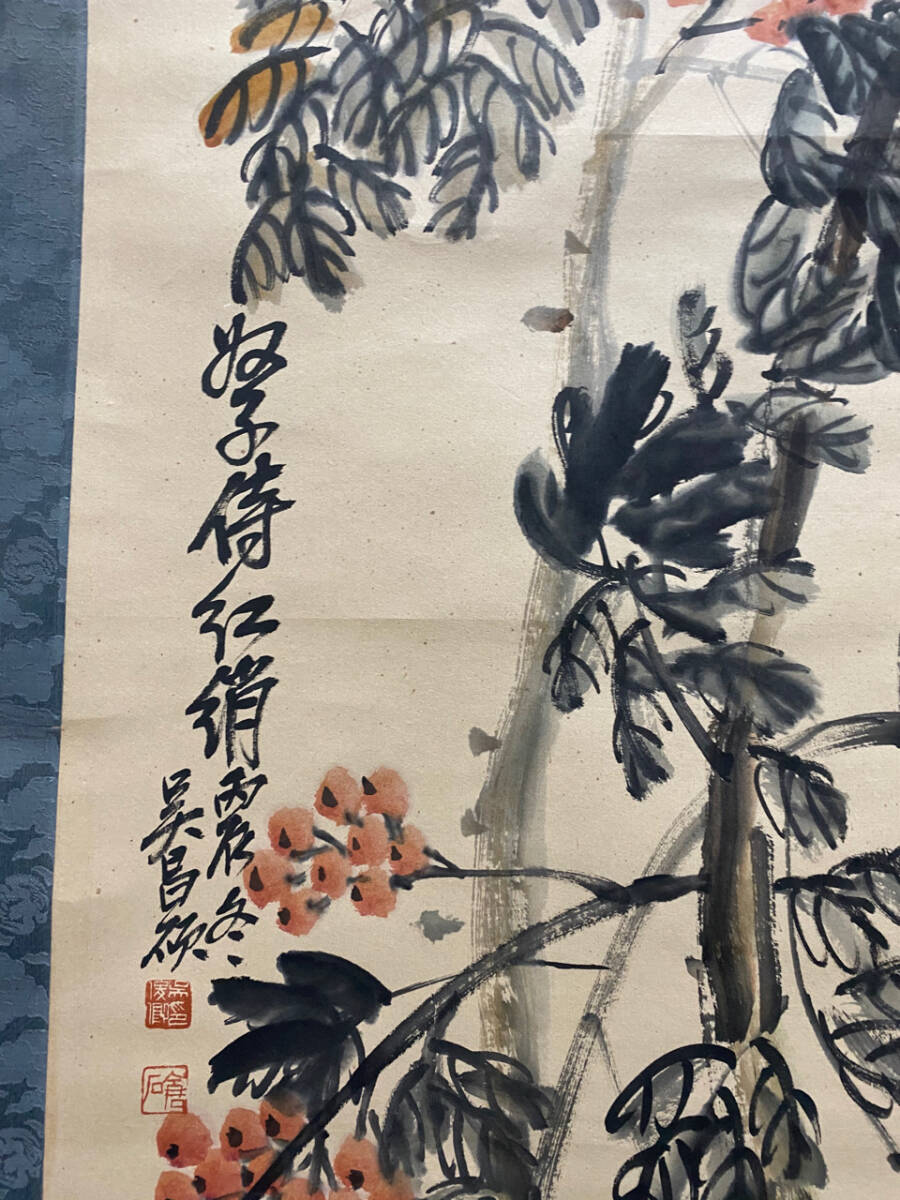 奴子侍红绡丙辰冬
吴昌硕